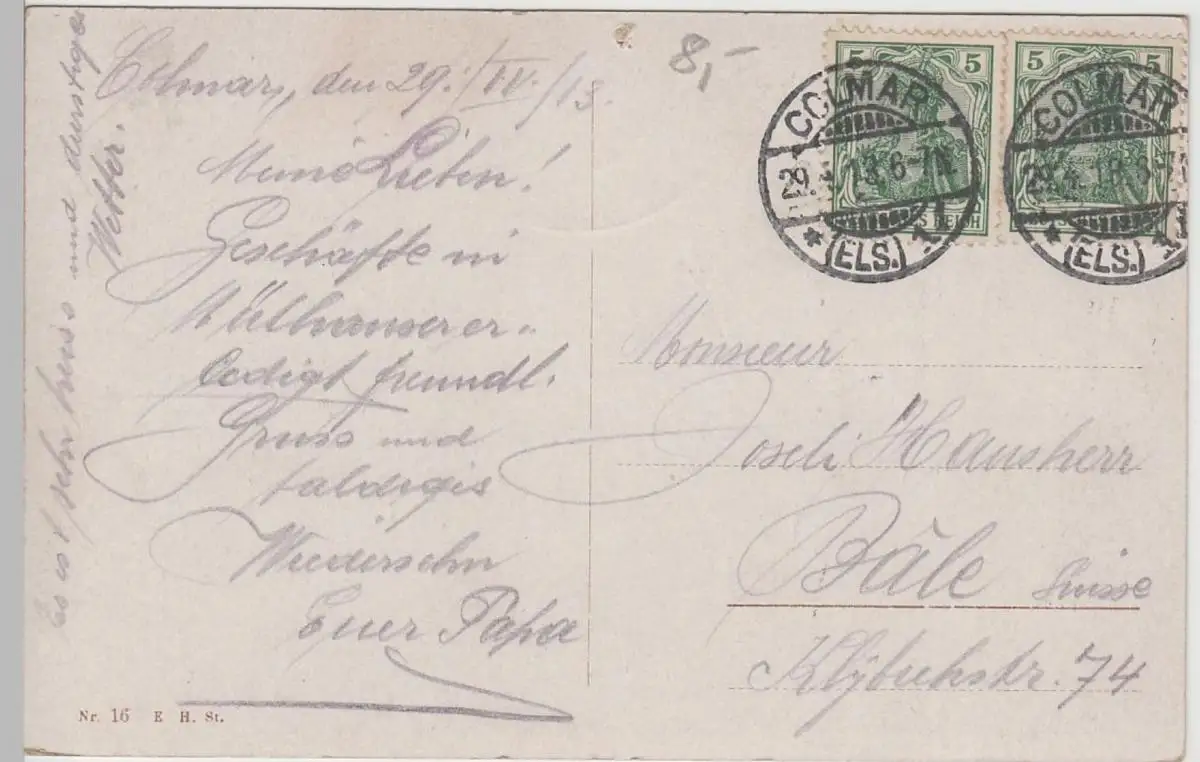 Colmar, den 29./IV./13.
Meine Lieben!
Geschäfte in
Mülhausen er-
ledigt freundl.
Gruss und
baldiges
Wiedersehn
Euer Papa
Es ist sehr heiss und durstiges
Wetter.
8,-
5 5
5 5
COLMAR
29.4.13.6-7N.
(ELS.)
* 1 1
COLMAR
29.4.13.6-7N
(ELS.)
Monsieur
Josch Hausherr
Bâle Suisse
Klÿbuhstr. 74
Nr. 16 E H. St.